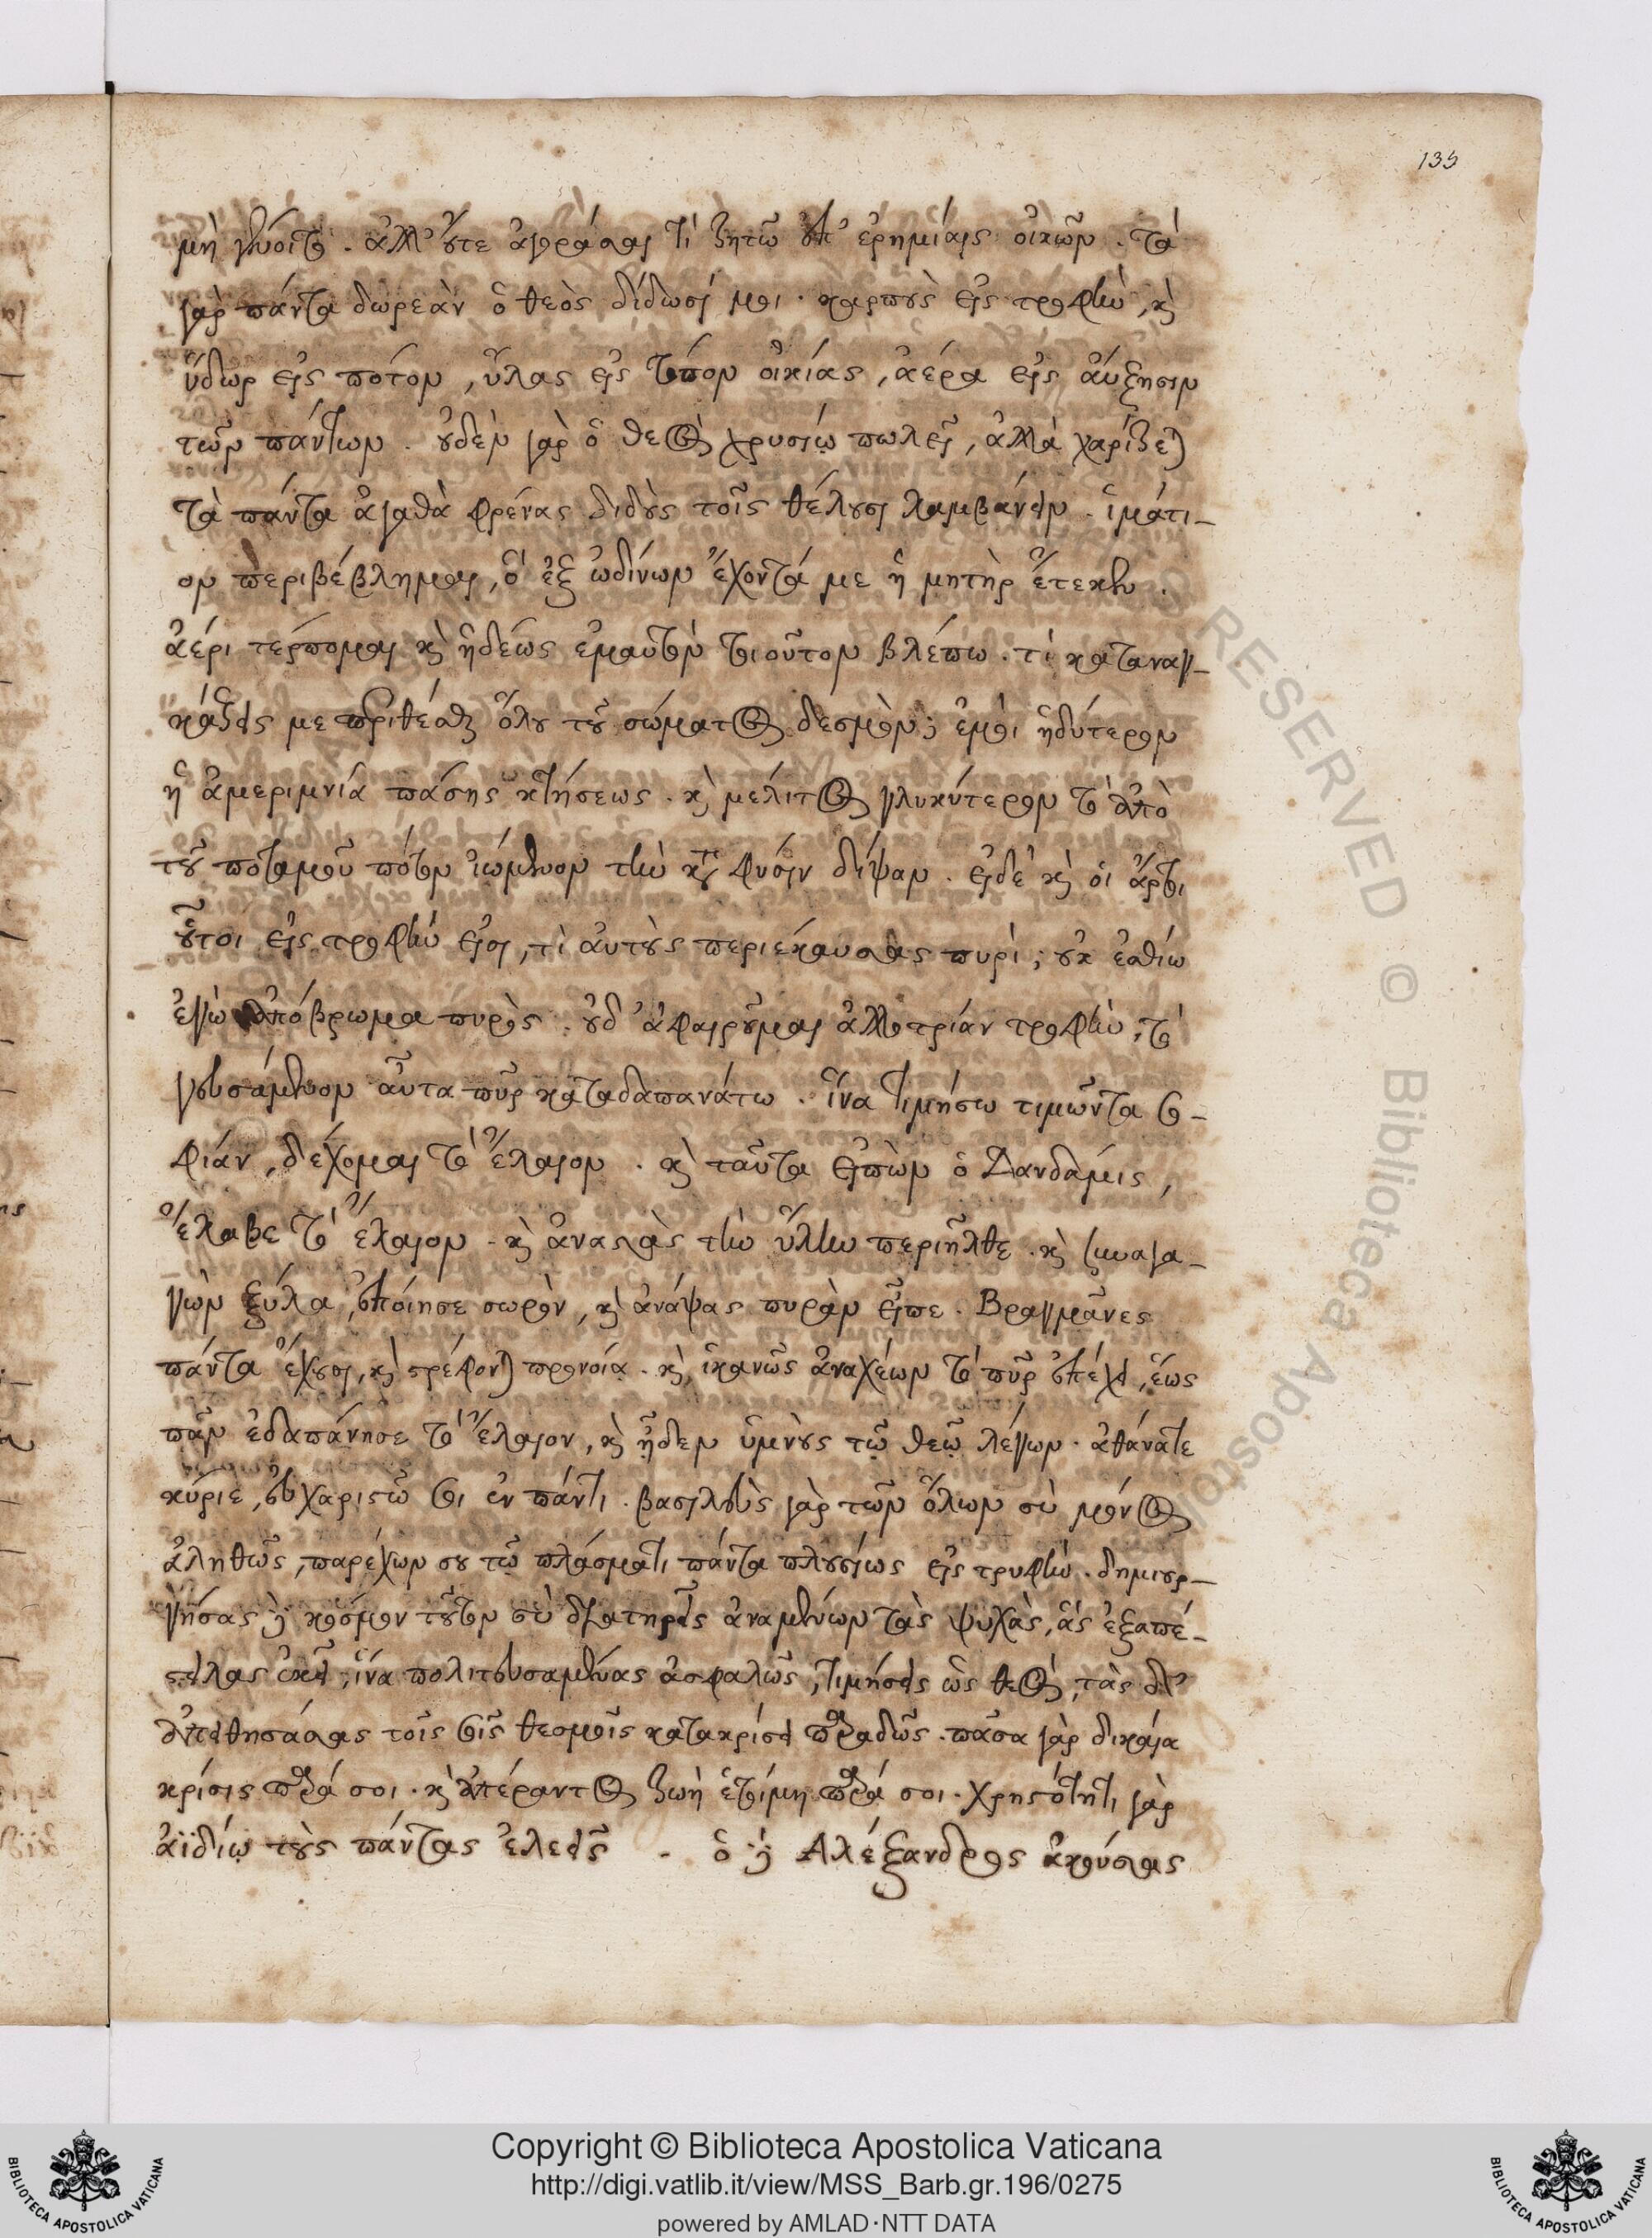 135
μὴ γένοιτο. ἀλλ' οὔτε ἀγοράσαι τί ζητῶ ἐπ' ἐρημίαις οἰκῶν. τὰ
γὰρ πάντα δωρεὰν ὁ θεὸς δίδωσί μοι. καρποὺς εἰς τροφὴν, καὶ
ὕδωρ εἰς πότον, ὕλας εἰς τόπον οἰκίας, ἀέρα εἰς αὔξησιν
τῶν πάντων. οὐδὲν γὰρ ὁ θεὸς χρυσίῳ πωλεῖ, ἀλλὰ χαρίζεται
τὰ πάντα ἀγαθὰ φρένας διδοὺς τοῖς θέλουσι λαμβάνειν. ἱμάτι-
ον περιβέβλημαι, ὃ ἐξ ὠδίνων ἔχοντά με ἡ μητὴρ ἔτεκεν.
ἀέρι τέρπομαι καὶ ἡδέως ἐμαυτὸν τοιοῦτον βλέπω. τί καταναγ-
κάζεις με περιθέσθαι ὅλου τοῦ σώματος δεσμὸν; ἐμοὶ ἡδύτερον
ἡ ἀμεριμνία πάσης κτήσεως. καὶ μέλιτος γλυκύτερον τὸ ἀπὸ
τοῦ ποταμοῦ πότον ἰώμενον τὴν κατὰ φύσιν δίψαν. εἰ δὲ καὶ οἱ ἄρτοι
οὗτοι εἰς τροφὴν εἰσι, τὶ αὐτοὺς περιεκαύσας πυρί; οὐκ ἐσθίω
ἐγὼ ἀπόβρωμα πυρὸς. οὐδ' ἀφαιροῦμαι ἀλλοτρίαν τροφὴν, τὸ
γευσάμενον αὖτα πῦρ καταδαπανάτω. ἵνα τιμήσω τιμῶντα σο-
φίαν, δέχομαι τὸ ἔλαιον. καὶ ταῦτα εἰπὼν ὁ Δανδάμις,
ἔλαβε τὸ ἔλαιον. καὶ ἀναστὰς τὴν ὕλην περιῆλθε. καὶ συναγα-
γὼν ξύλα, ἐποίησε σωρὸν, καὶ ἀνάψας πυρὰν εἶπε. Βραγμᾶνες
πάντα ἔχουσι, καὶ τρέφονται προνοίᾳ. καὶ, ἱκανῶς ἀναχέων τὸ πῦρ ἐπέχει, ἕως
πᾶν ἐδαπάνησε τὸ ἔλαιον, καὶ ᾖδεν ὑμνοὺς τῷ θεῷ λέγων. ἀθάνατε
κύριε, εὐχαριστῶ σοι ἐν πάντι. βασιλεὺς γὰρ τῶν ὅλων σὺ μόνος
ἀληθῶς, παρέχων σου τῷ πλάσματι πάντα πλουσίως εἰς τρυφὴν. δημιουρ-
γήσας δὲ κόσμον τοῦτον σὺ διατηρεῖς ἀναμένων τὰς ψυχὰς, ἃς ἐξαπέ-
στειλας ἐκεῖ, ἵνα πολιτευσαμένας ἀσφαλῶς, τιμήσεις ὡς θεὸς, τὰς δ'
ἀπειθησάσας τοῖς σοῖς θεσμοῖς κατακρίσει παραδῶς. πᾶσα γὰρ δικαία
κρίσις παρά σοι. καὶ ἀπέραντος ζωὴ ἑτοίμη παρά σοι. χρηστότητι γὰρ
ἀϊδίῳ τοὺς πάντας ἐλεεῖς. ὁ δὲ Αλέξανδρος ἀκούσας
Copyright © Biblioteca Apostolica Vaticana
http://digi.vatlib.it/view/MSS_Barb.gr.196/0275
powered by AMLAD·NTT DATA